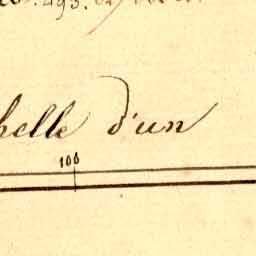 493.
helle d'un
100